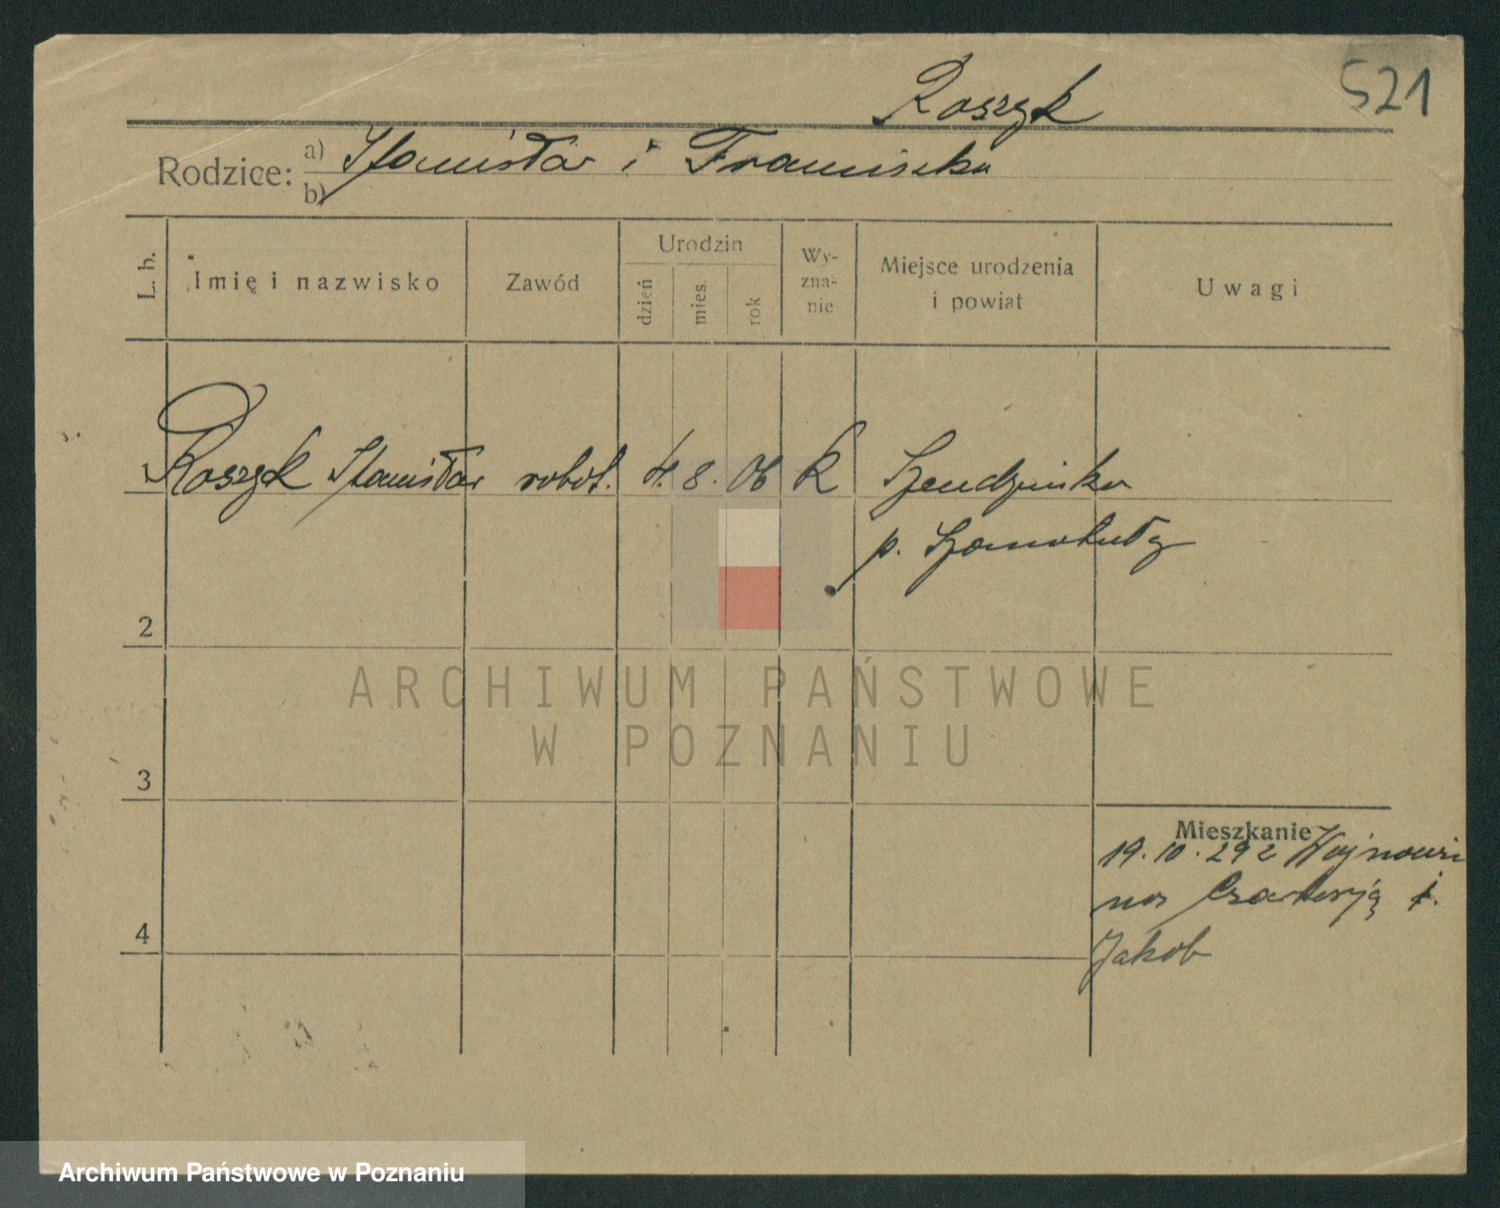 521
Roszyk
Rodzice: a) Stanisław i Franciszka
b)
L. b.
Imię i nazwisko
Zawód
Urodzin
dzień
mies.
rok
Wy-
zna-
nie
Miejsce urodzenia
i powiat
Uwagi
Roszyk Stanisław robot. 4. 8. 06 k Szendzinka
p. Szamotuły
2
ARCHIWUM PAŃSTWOWE
W POZNANIU
3
Mieszkanie
19.10.29 z Wojnowi
Czarter
4
Jakob
Archiwum Państwowe w Poznaniu